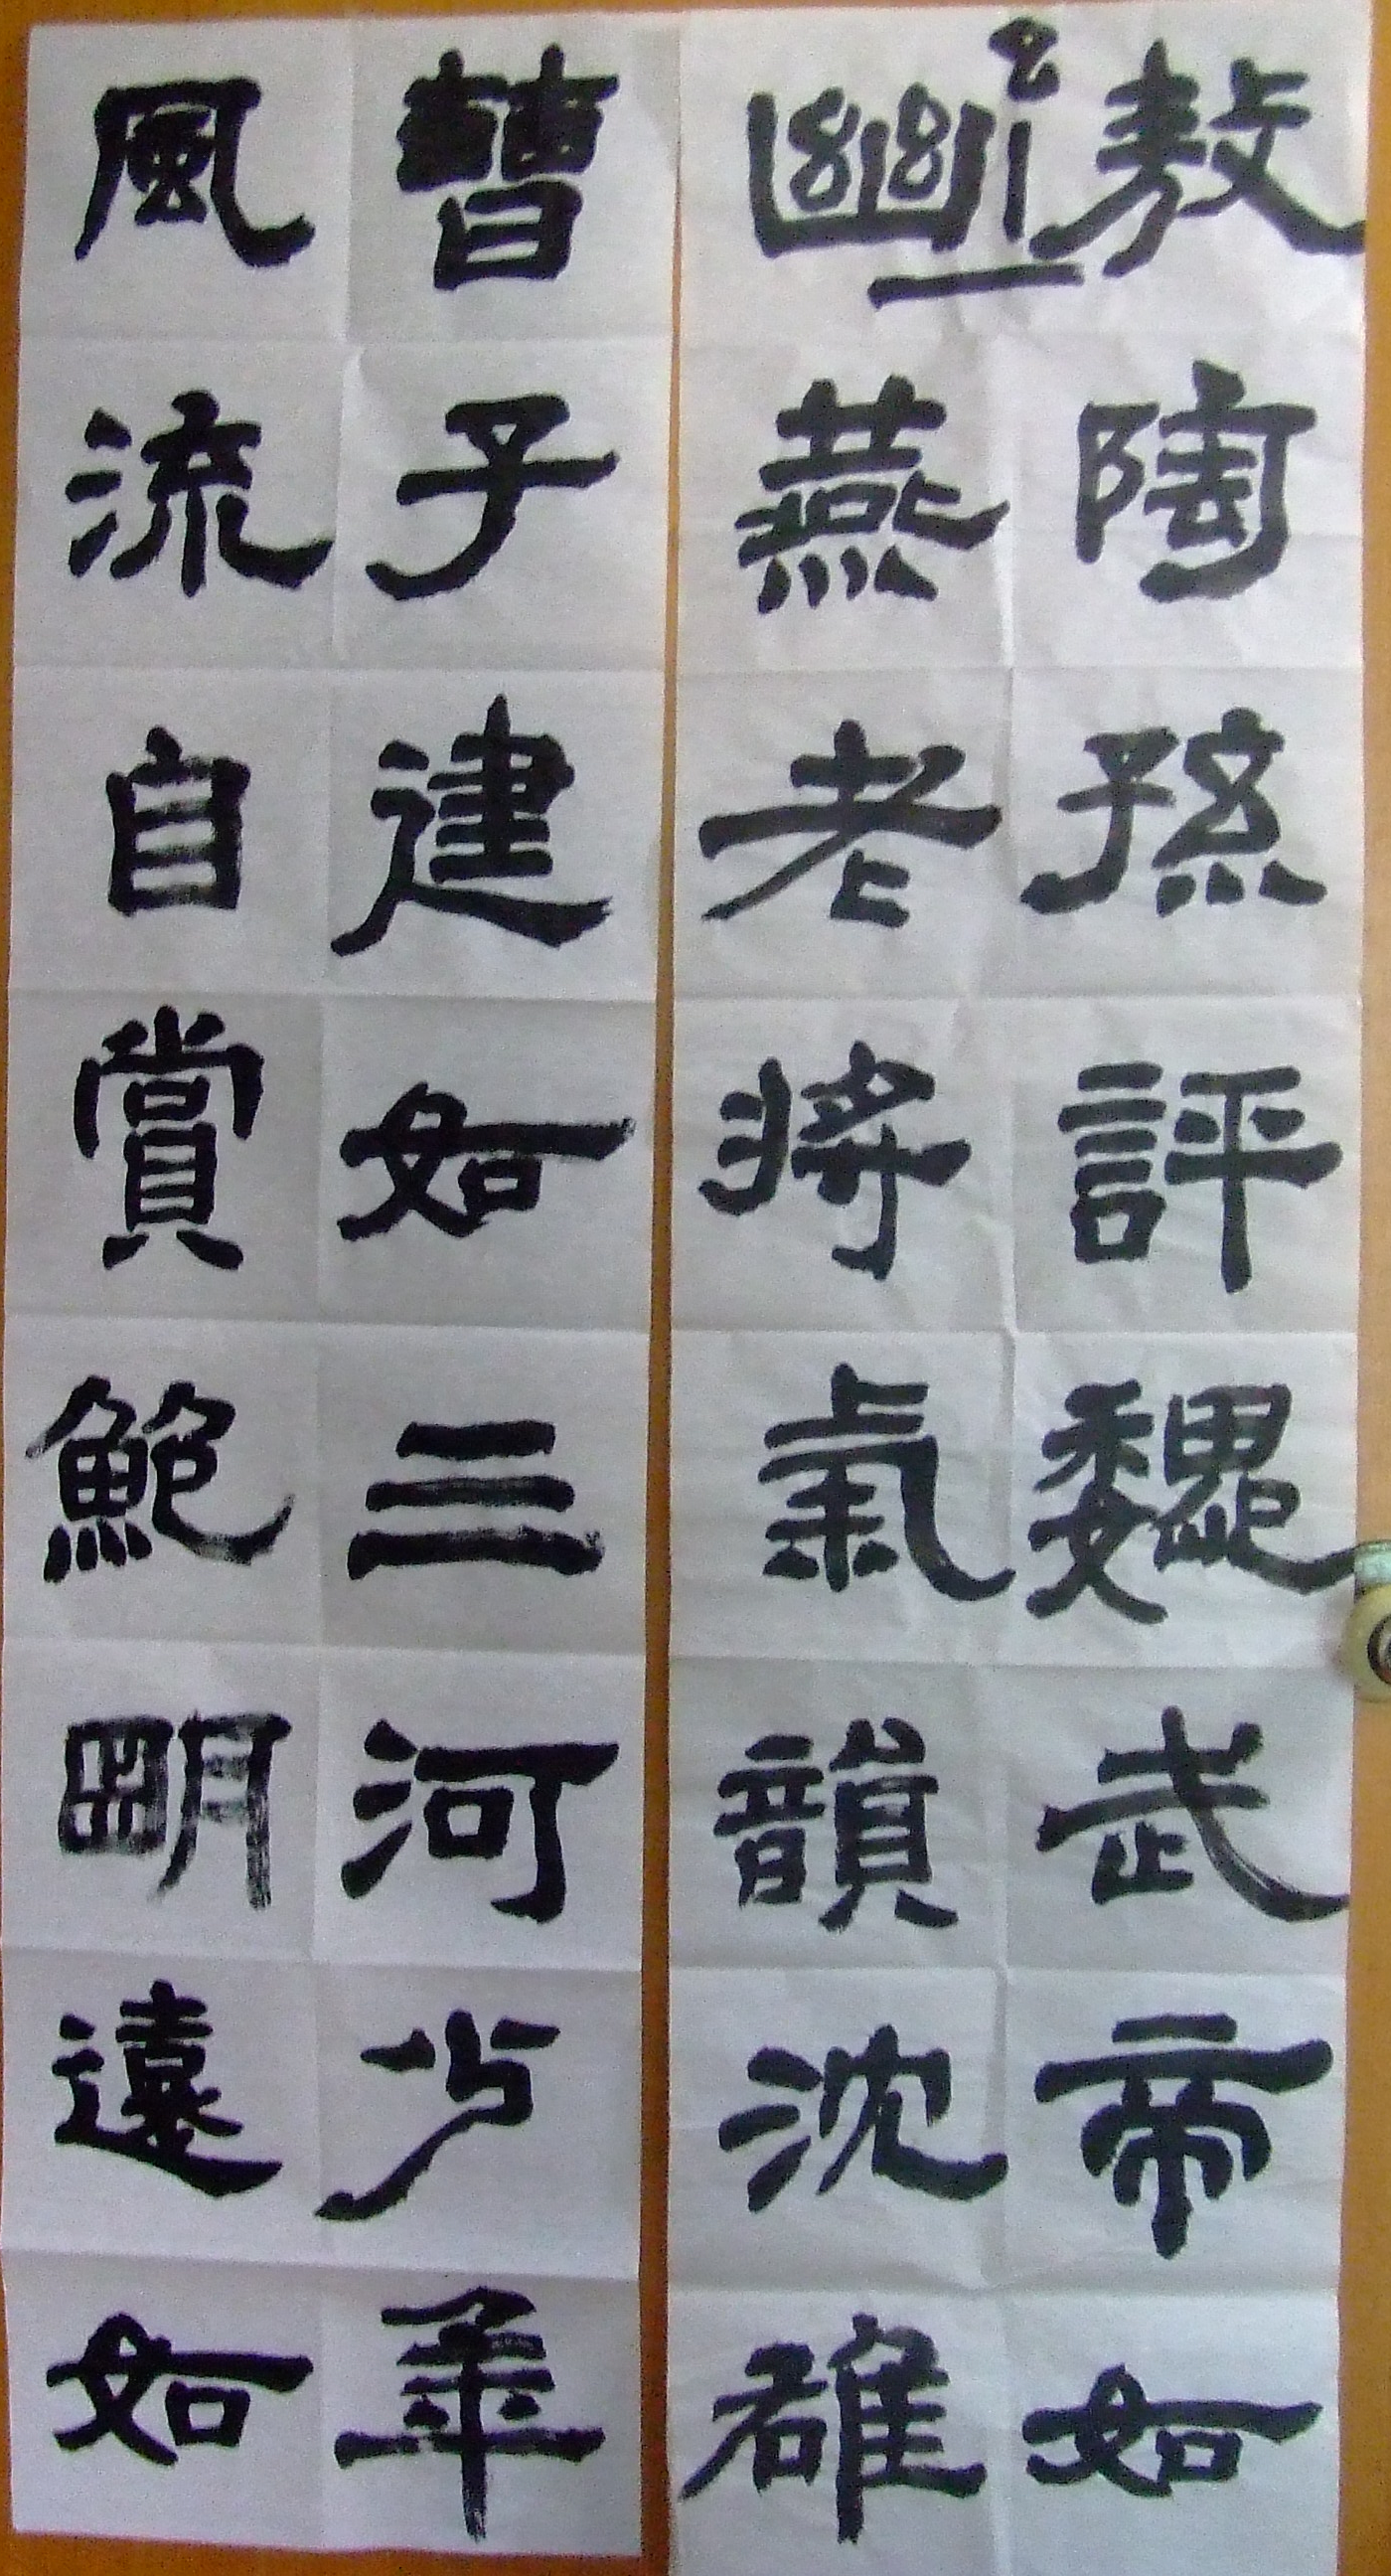 敖陶孫評魏武帝如
幽燕老將氣韻沈雄
曹子建如三河少年
風流自賞鮑明遠如